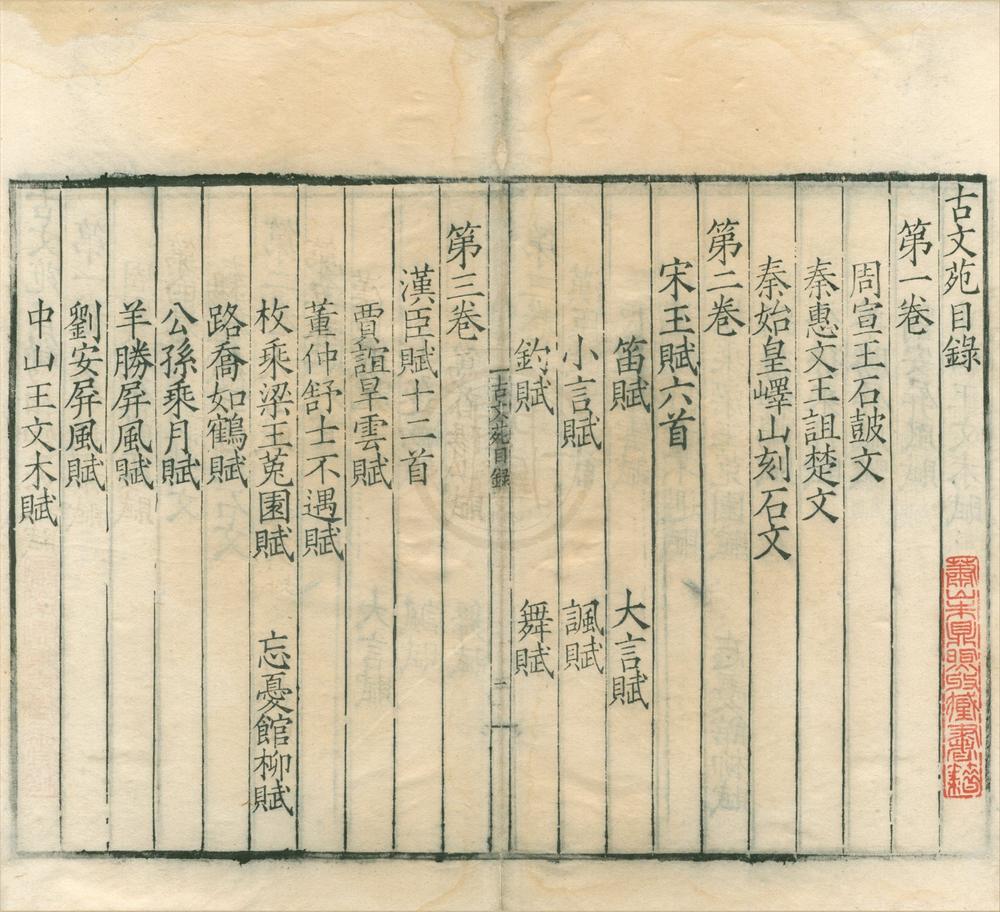 古文苑目錄
第一卷
周宣王石皷文
秦惠文王詛楚文
秦始皇嶧山刻石文
第二卷
宋玉賦六首
笛賦 大言賦
小言賦 諷賦
釣賦 舞賦
古文苑目錄
第三卷
漢臣賦十二首
賈誼旱雲賦
董仲舒士不遇賦
枚乘梁王菟園賦 忘憂館柳賦
路喬如鶴賦
公孫乘月賦
羊勝屏風賦
劉安屏風賦
中山王文木賦
蕭山朱鼎煦收藏書籍